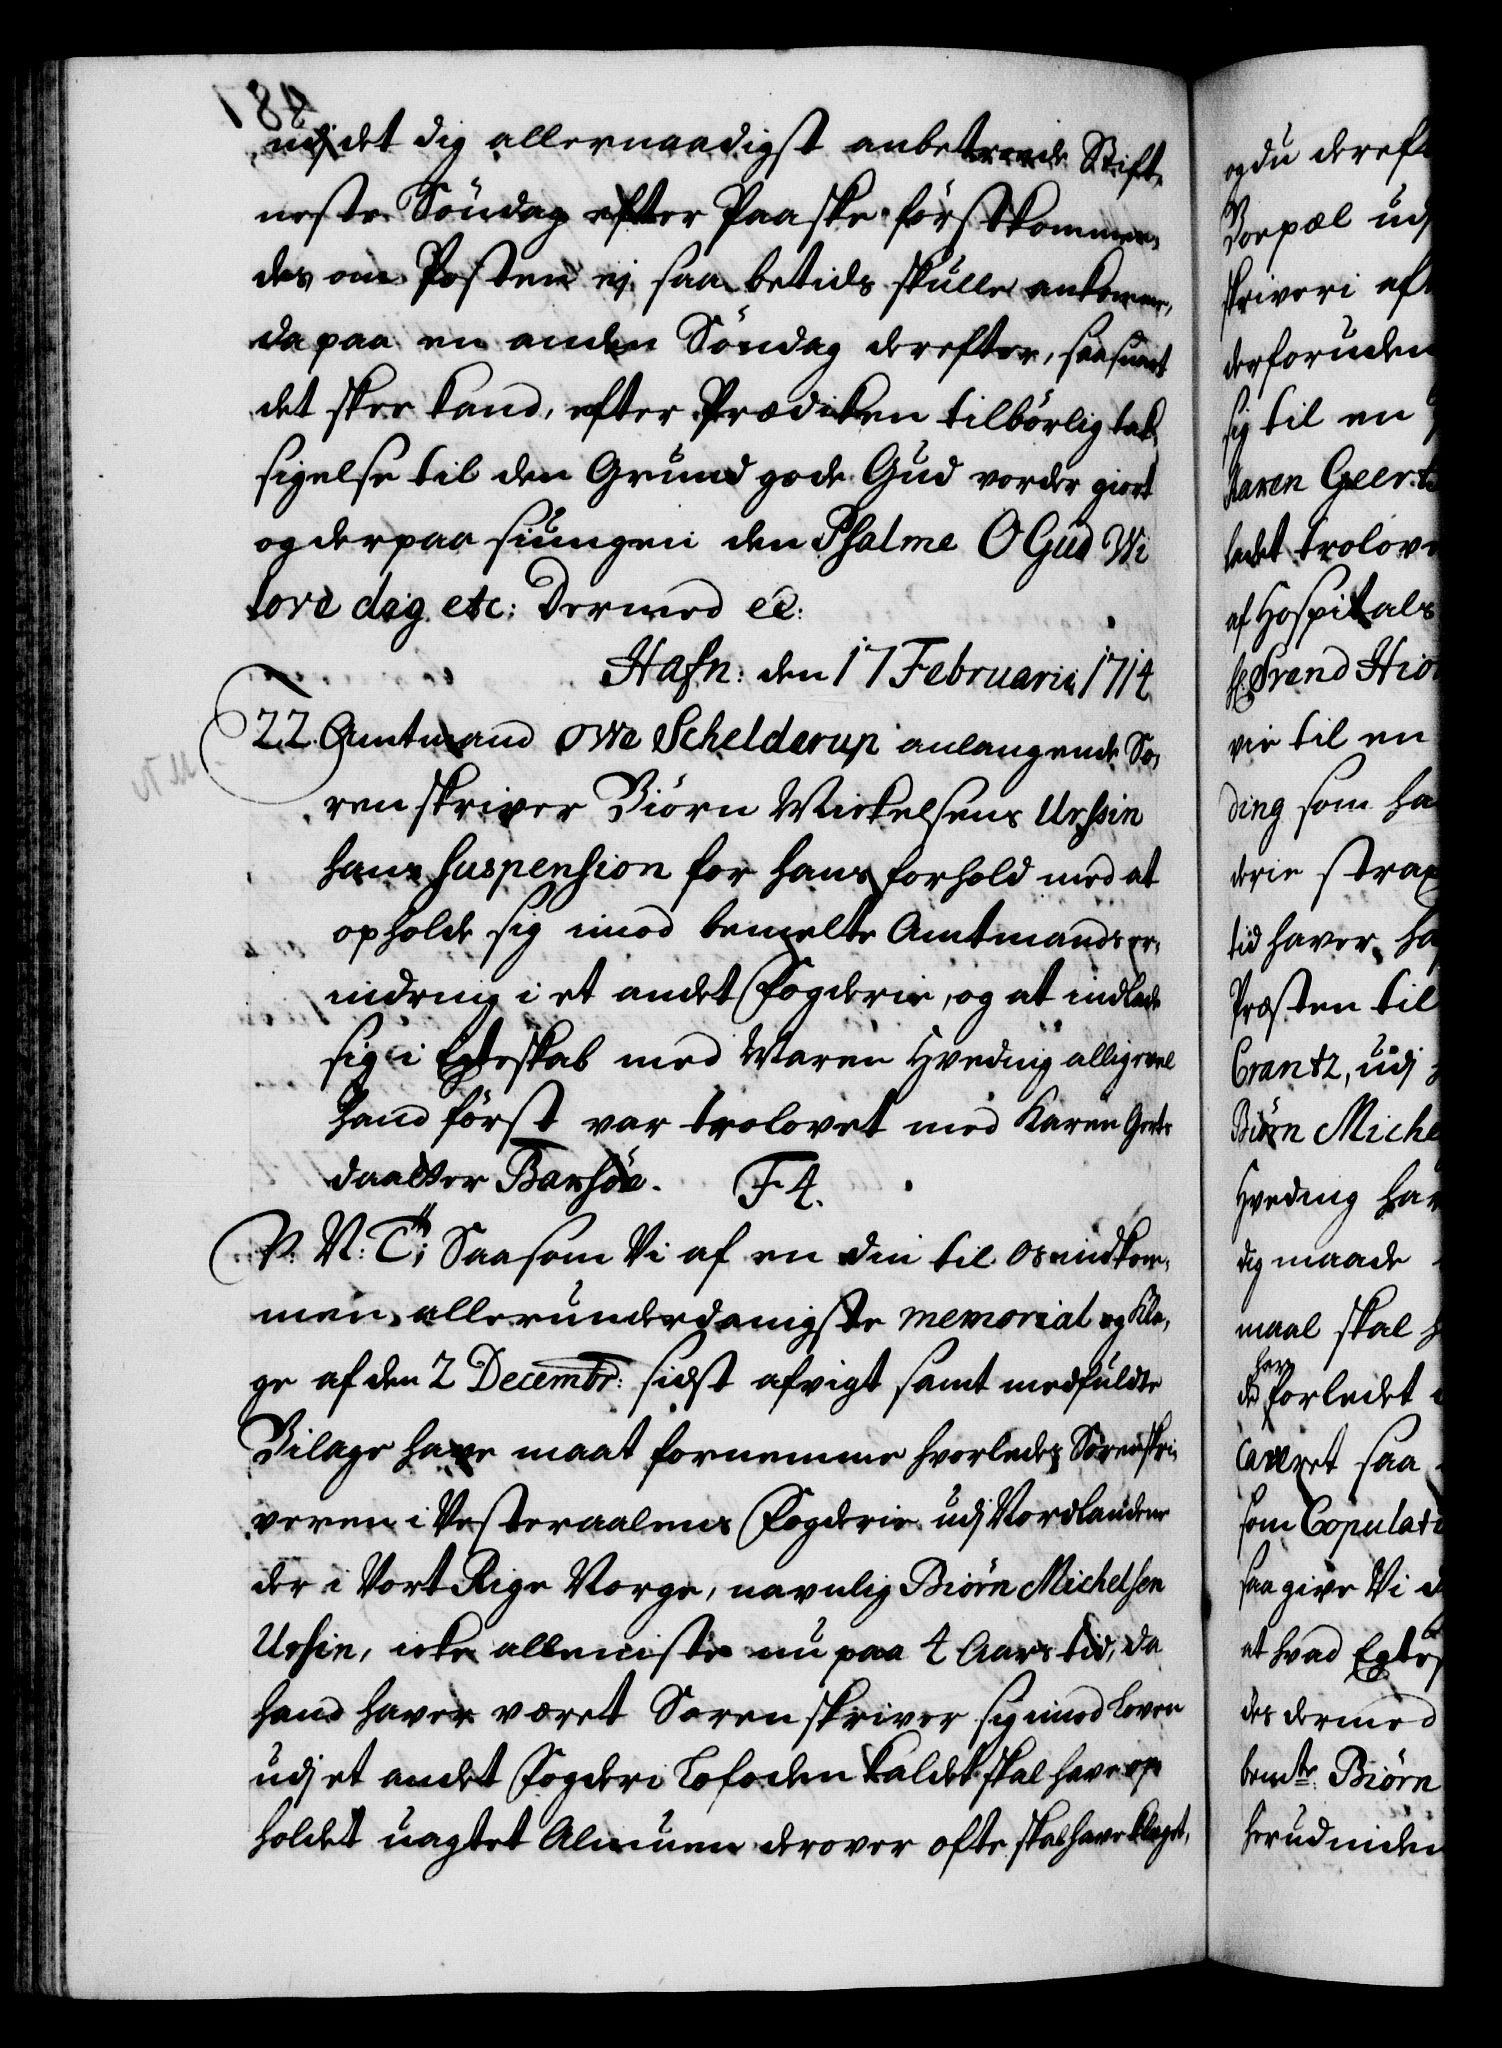 udj det dig allernaadigst anbetroede Stift,
neste Söndag efter Paaske först kommen,
des om Posten ej saa betids skulle ankomme,
da paa en anden Söndag derefter, saa snart
det skee kand, efter Prædiken tilbörlig tak,
sigelse til den Grund gode Gud vorder giort
og derpaa siungen den Psalme O Gud Wi
love dig etc: Dermed ec:
Hafn: den 17 Februarii 1714
22. Amtmand Owe Schelderup anlangende So,
ren skriver Biörn Mickelsens Urhsin
hans suspension for hans forhold med at
opholde sig imod bemelte Amtmands er,
indring i et andet Fogderie, og at indlade
sig i Egteskab med Maren Hveding alligevel
hand först var trolovet med Karen Geerts
daatter Barhöe. F 4.
V. N: T: Saasom Vi af en din til os indkom,
men allerunderdanigste memorial og Kla,
ge af den 2 Decembr: sidst afvigt samt medfuldte
Bilage have maat fornemme hvorledes Sorenskri,
veren i Vesteraalens Fogderie udj Nordlandene
der i Vort Rige Norge, navnlig Biörn Michelsen
Urhsin, icke alleeniste nu paa 4 Aars tid, da
hand haver været Sorenskriver sig imod Loven
udj et andet Fogderi Lofoden kaldet skal have op
holdet uagtet Almuen derover ofte skal have klaget,
og du dereft
skriveri aft
derforuden
sig til en
Karen Geert
ledet trolov
af Hospitals
Hr Svend Hio
vie til en
ding som ha
derie strax
tid haver, ha
Præsten til
Crantz, udj
Biörn Miche
Hveding ha
dig maade
maal skal
har
de forledet
caveret saa
som Copulati
saa give Vi
at hvad Egtes
des dermed
bemte Biörn
herudinden